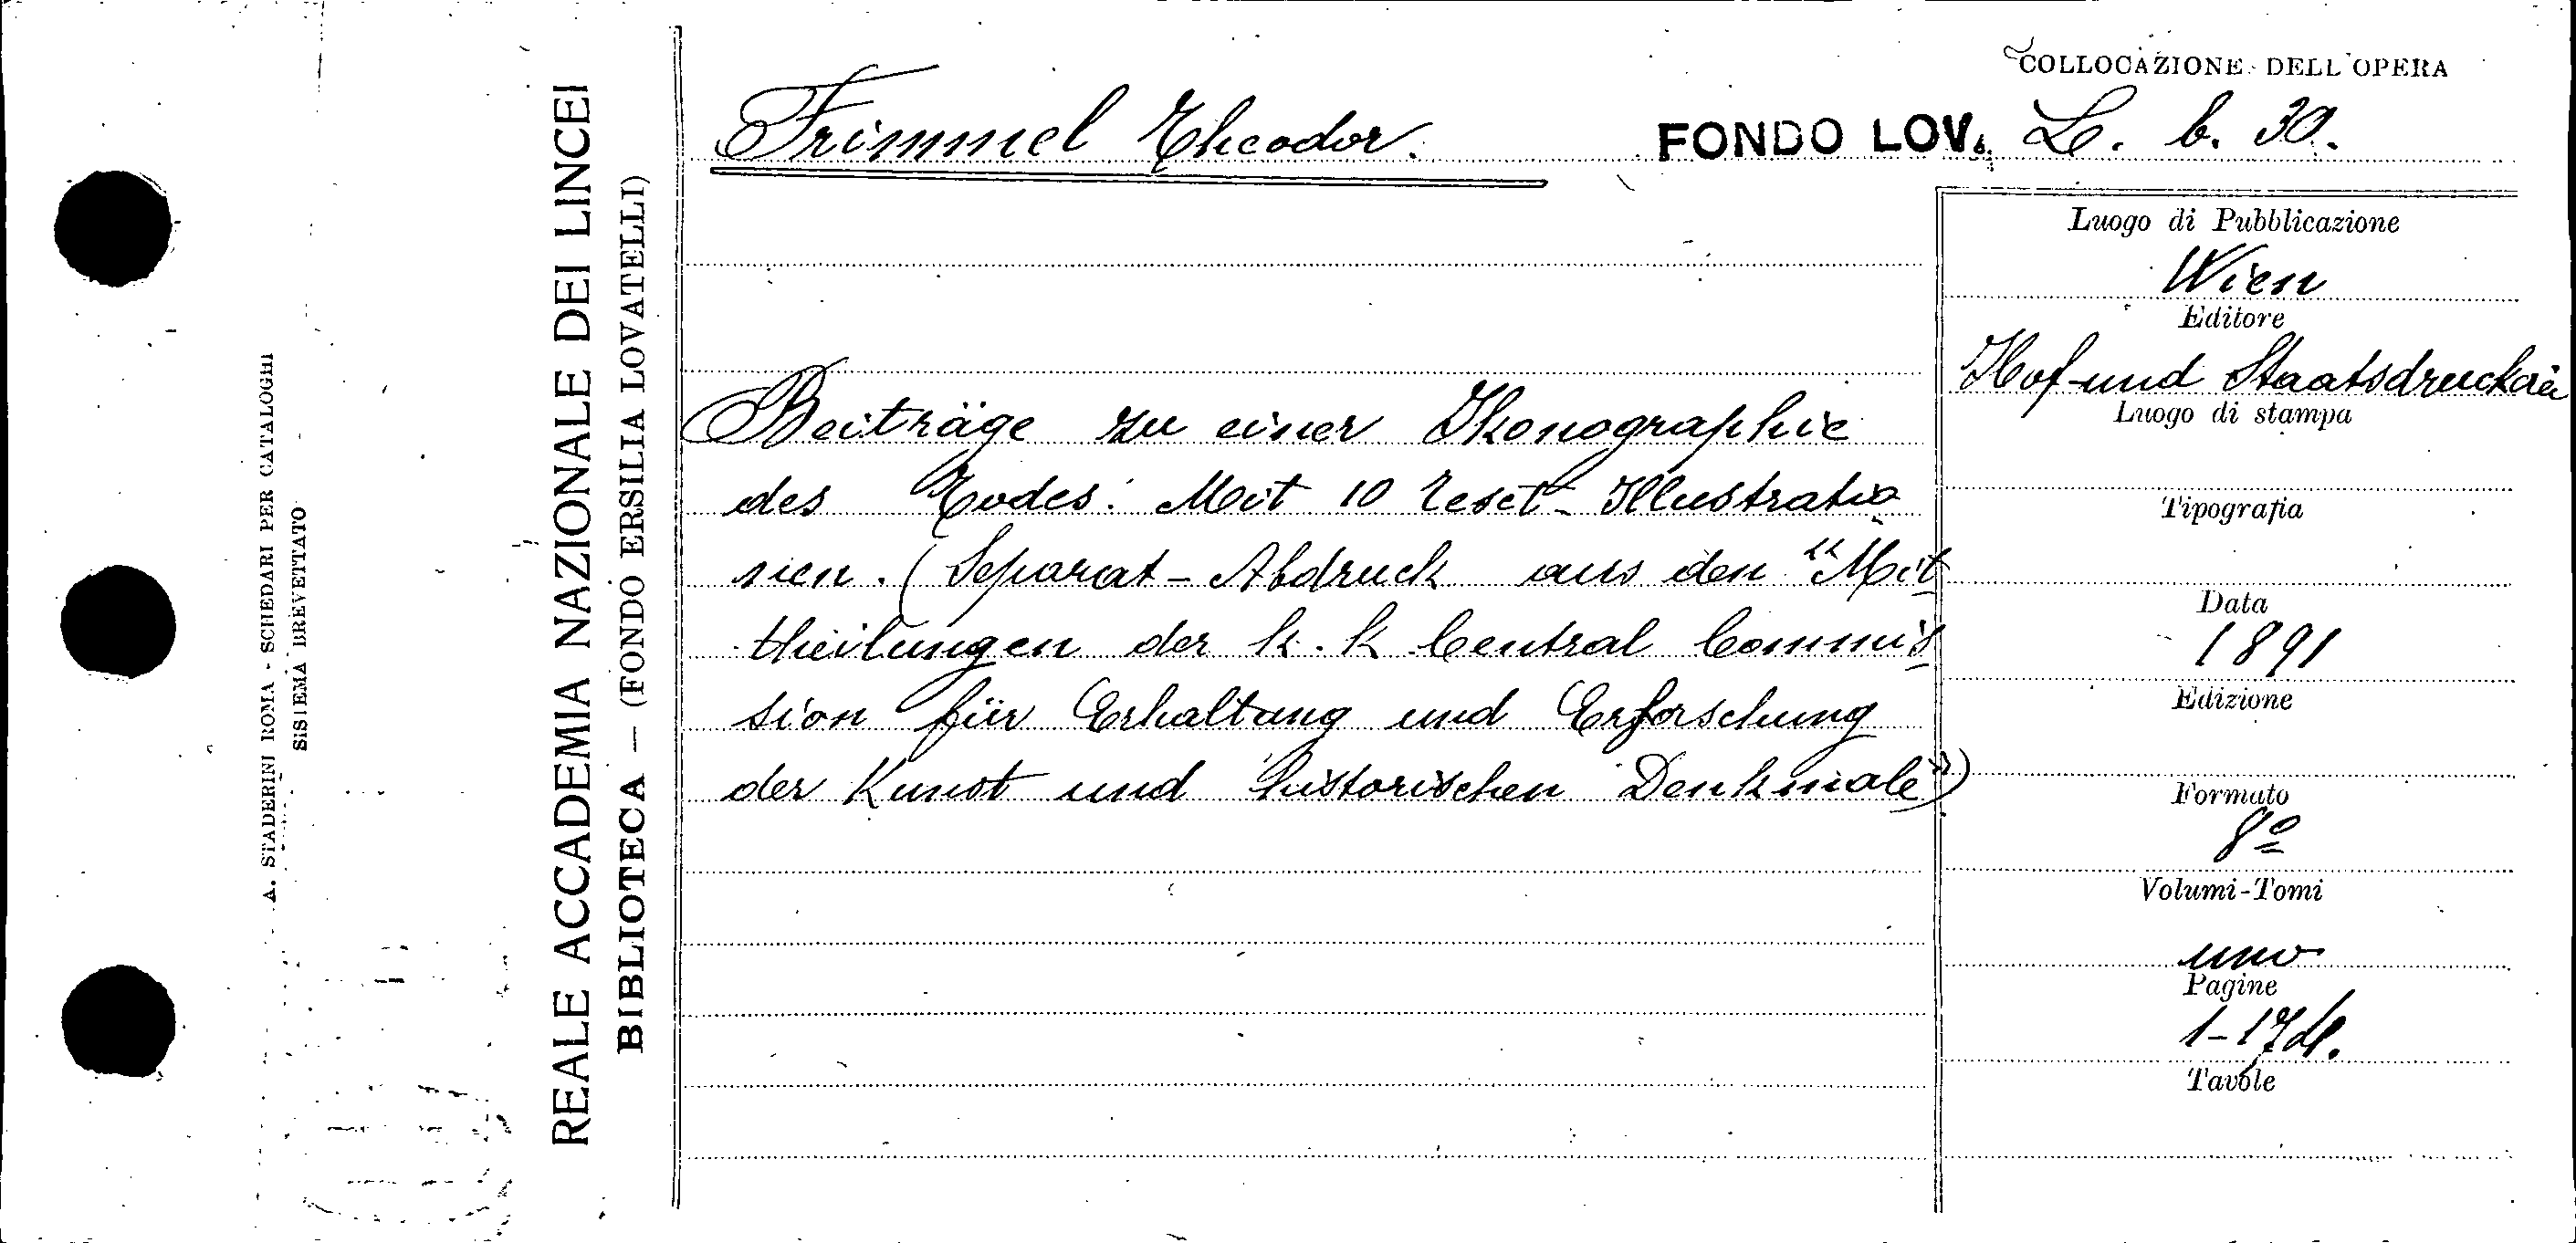 A. STADERINI ROMA - SCHEDARI PER CATALOGHI
SISTEMA BREVETTATO
REALE ACCADEMIA NAZIONALE DEI LINCEI
BIBLIOTECA — (FONDO ERSILIA LOVATELLI)
COLLOCAZIONE DELL'OPERA
Frimmel Theodor.
FONDO LOV. L. b. 30.
Beiträge zu einer Ikonographie
des Todes. Mit 10 Texst-Illustratio
nien. (Separat-Abdruck aus den "Mit
theilungen der k. k Central Commis
sion für Erhaltung und Erforschung
der Kunst und historischen Denkmale")
Luogo di Pubblicazione
Wien
Editore
Hof-und Staatsdruckerei
Luogo di stampa
Tipografia
Data
1891
Edizione
Formato
8º
Volumi-Tomi
uno
Pagine
1-17
Tavole